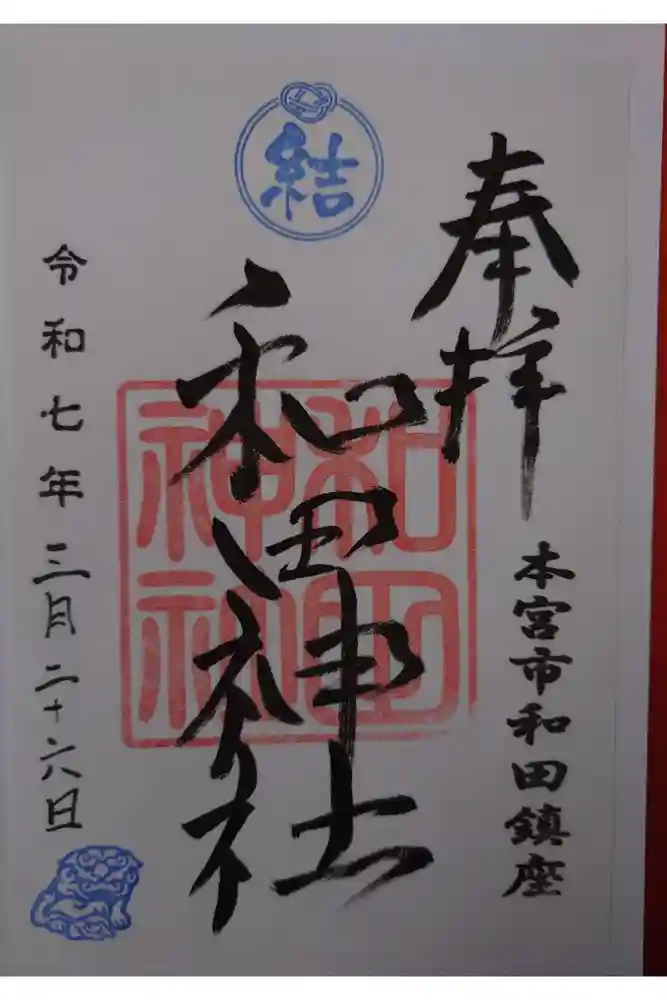 奉拝
本宮市和田鎮座
結
和田神社
和田神社
令和七年三月二十六日